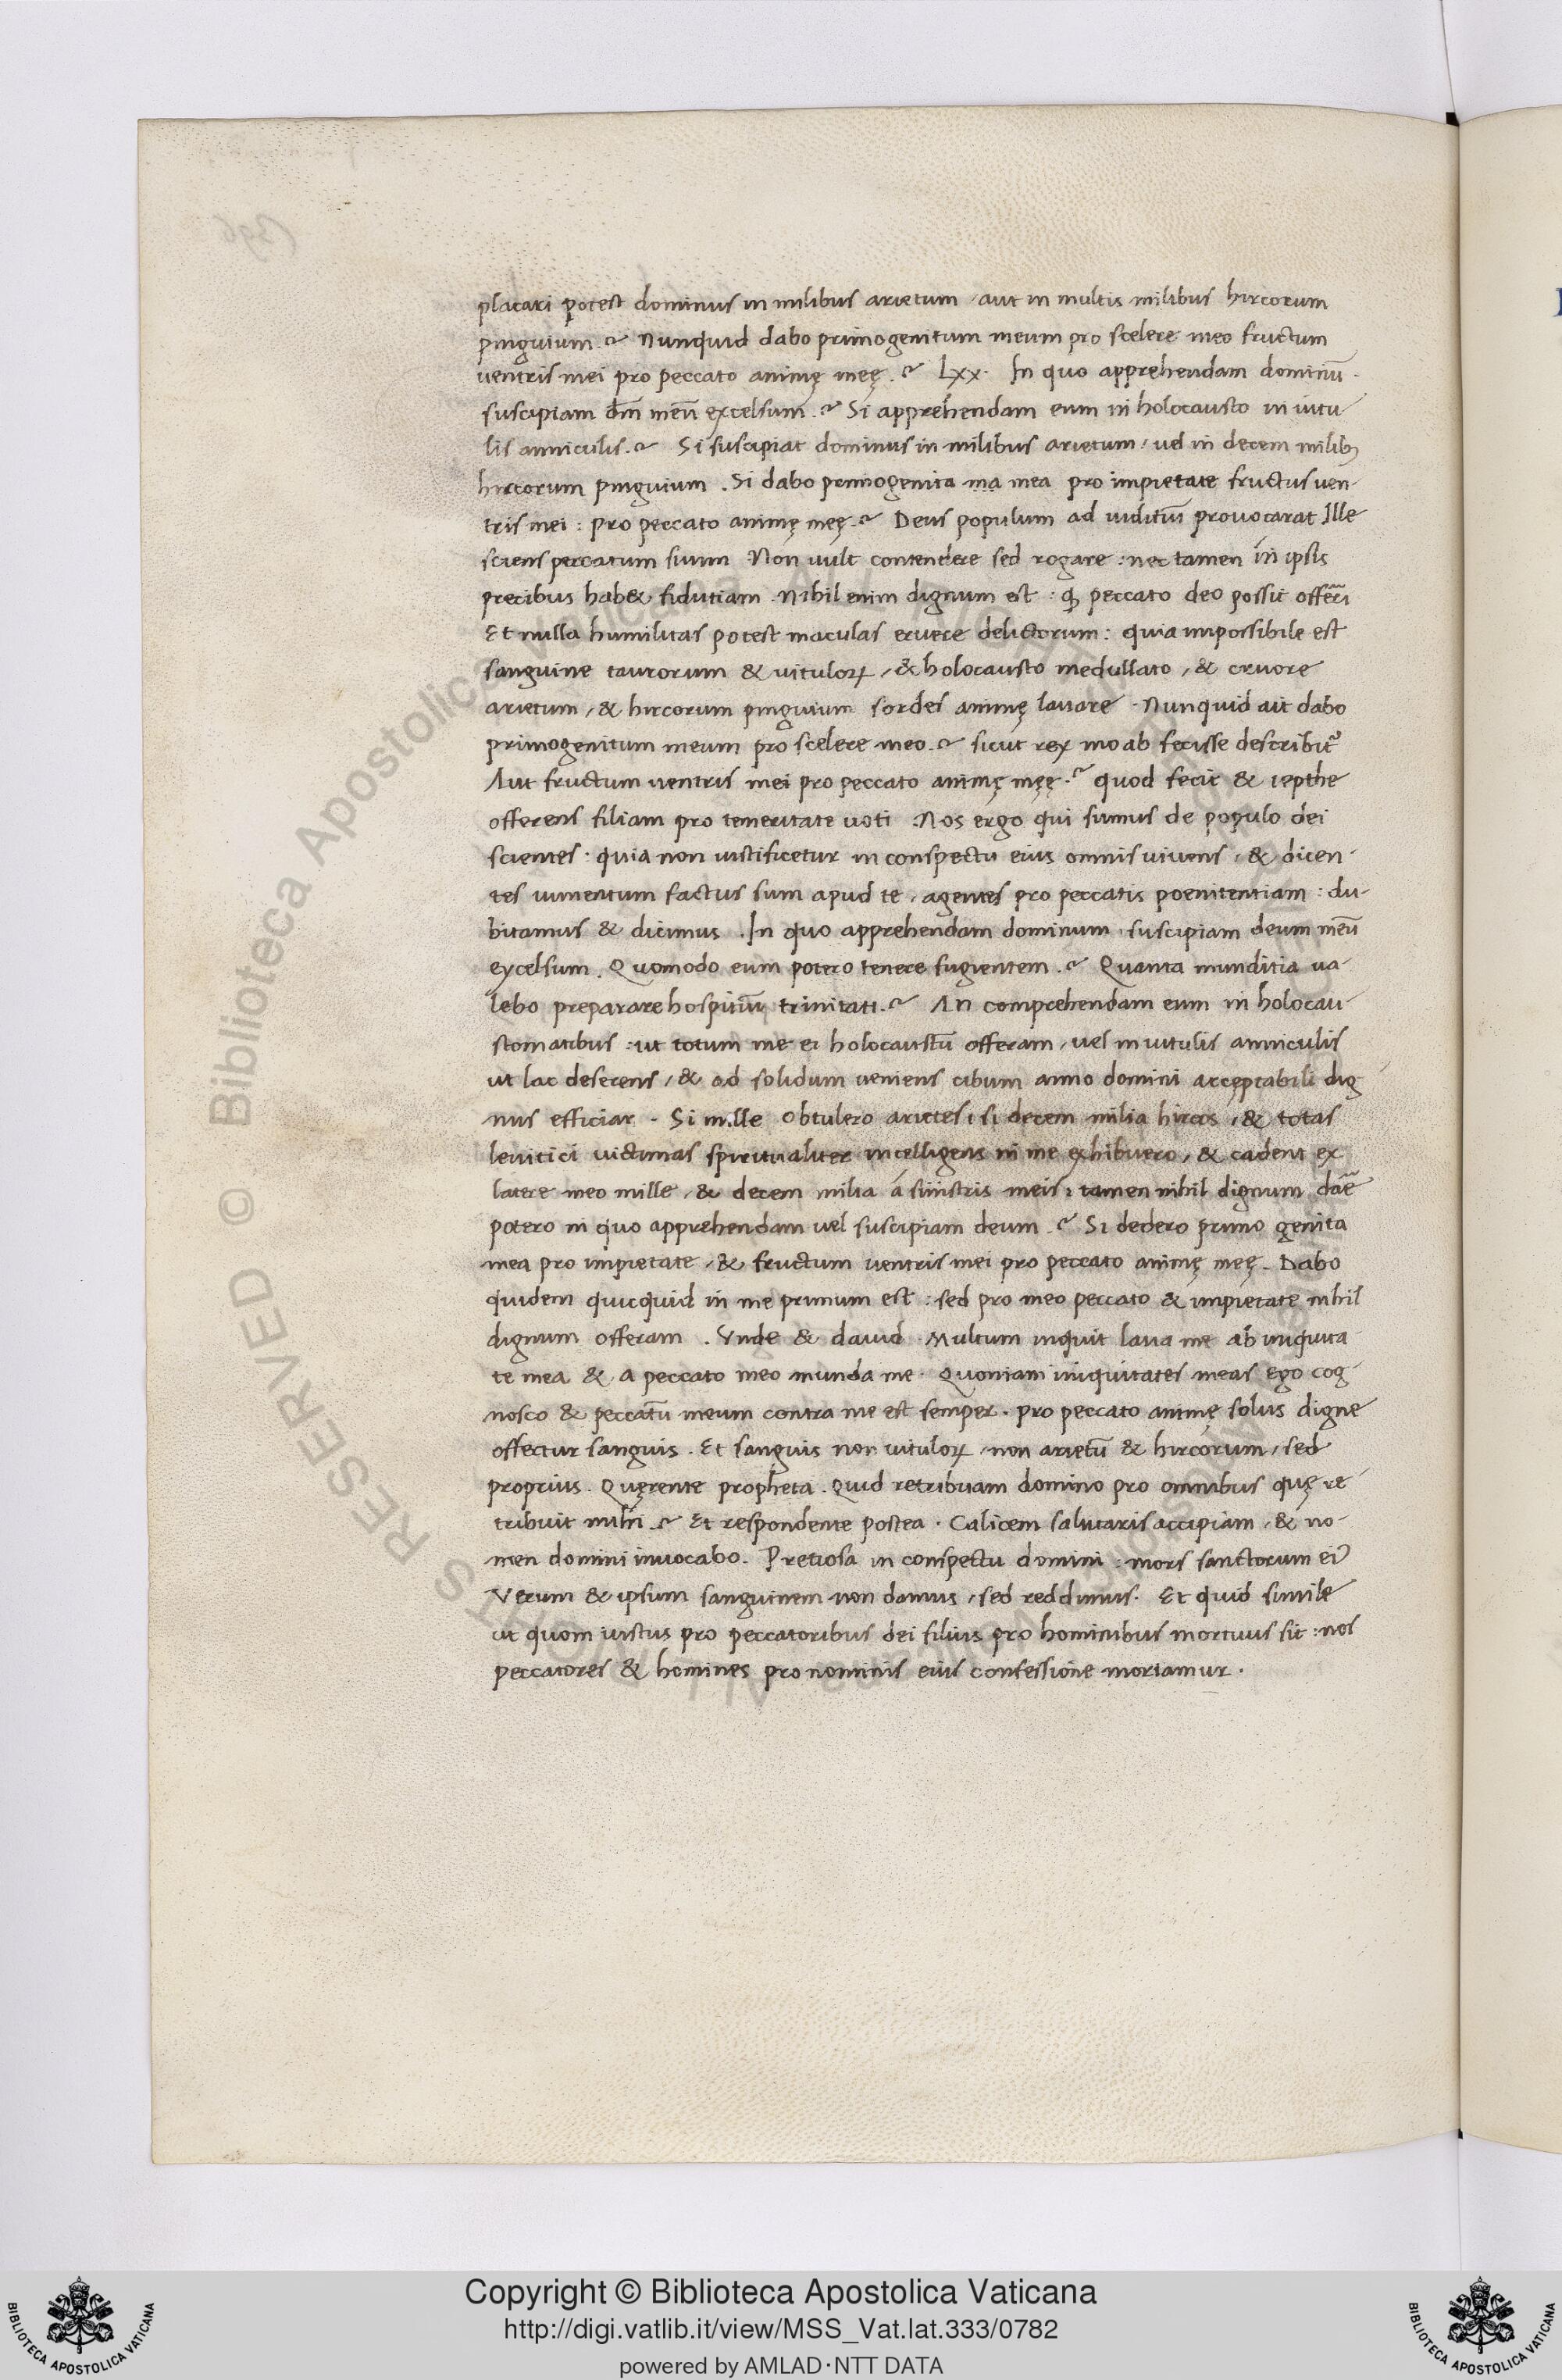 placari potest dominus in milibus arietum, aut in multis milibus hircorum
pinguium.? Nunquid dabo primogenitum meum pro scelere meo fructum
uentris mei pro peccato animę meę.? Lxx. In quo apprehendam dominū.
suscipiam dm̄ meū excelsum.? Si apprehendam eum in holocausto in uitu
lis anniculis.? Si suscipiat dominus in milibus arietum, uel in decem milibꝫ
hircorum pinguium. Si dabo primogenita ma mea pro impietate fructus uen-
tris mei: pro peccato animę meę.? Deus populum ad iuditiū prouocarat Ille
sciens peccatum suum Non uult contendere sed rogare: nec tamen in ipsis
precibus hab& fidutiam. Nihil enim dignum est: ꝙ peccato deo possit offerri
Et nulla humilitas potest maculas eruere delictorum: quia impossibile est
sanguine taurorum & uituloꝝ, & holocausto medullato, & cruore
arietum, & hircorum pinguium sordes animę lauare. Nunquid ait dabo
primogenitum meum pro scelere meo.? sicut rex moab fecisse describit᷑
Aut fructum uentris mei pro peccato animę męę.? quod fecit & iepthe
offerens filiam pro temeritate uoti. Nos ergo qui sumus de populo dei
scientes: quia non iustificetur in conspectu eius omnis uiuens, & dicen-
tes iumentum factus sum apud te, agentes pro peccatis poenitentiam: du-
bitamus & dicimus. In quo apprehendam dominum, suscipiam deum meū
excelsum. Quomodo eum potero tenere fugientem.? Quanta munditia ua-
lebo preparare hospitiū trinitati.? An comprehendam eum in holocau-
stomatibus: ut totum me ei holocaustū offeram, uel in uitulis anniculis
ut lac deserens, & ad solidum ueniens cibum anno domini accęptabili dig
nus efficiar. Si mille obtulero arietes, si decem milia hircos, & totas
leuitici uictimas spiritualiter intelligens in me exhibuero, & cadent ex
latere meo mille, & decem milia á sinistris meis, tamen nihil dignum dar̄e
potero in quo apprehendam uel suscipiam deum.? Si dedero primo genita
mea pro impietate, & fructum uentris mei pro peccato animę meę. Dabo
quidem quicquid in me primum est: sed pro meo peccato & impietate nihil
dignum offeram. Vnde & dauid. Multum inquit laua me ab iniquita-
te mea & a peccato meo munda me. Quoniam iniquitates meas ego cog-
nosco & peccatū meum contra me est semper. pro peccato animę solus digne
offertur sanguis. Et sanguis non uituloꝝ, non arietū & hircorum, sed
proprius. Quęrente propheta. Quid retribuam domino pro omnibus quę re-
tribuit mihi.? Et respondente postea. Calicem salutaris accipiam, & no-
men domini inuocabo. Pretiosa in conspectu domini: mors sanctorum eiꝰ
Verum & ipsum sanguinem non damus, sed reddimus. Et quid simile
ut quom iustus pro peccatoribus dei filius pro hominibus mortuus sit: nos
peccatores & homines pro nominis eius confessione moriamur.
Copyright © Biblioteca Apostolica Vaticana
http://digi.vatlib.it/view/MSS_Vat.lat.333/0782
powered by AMLAD·NTT DATA